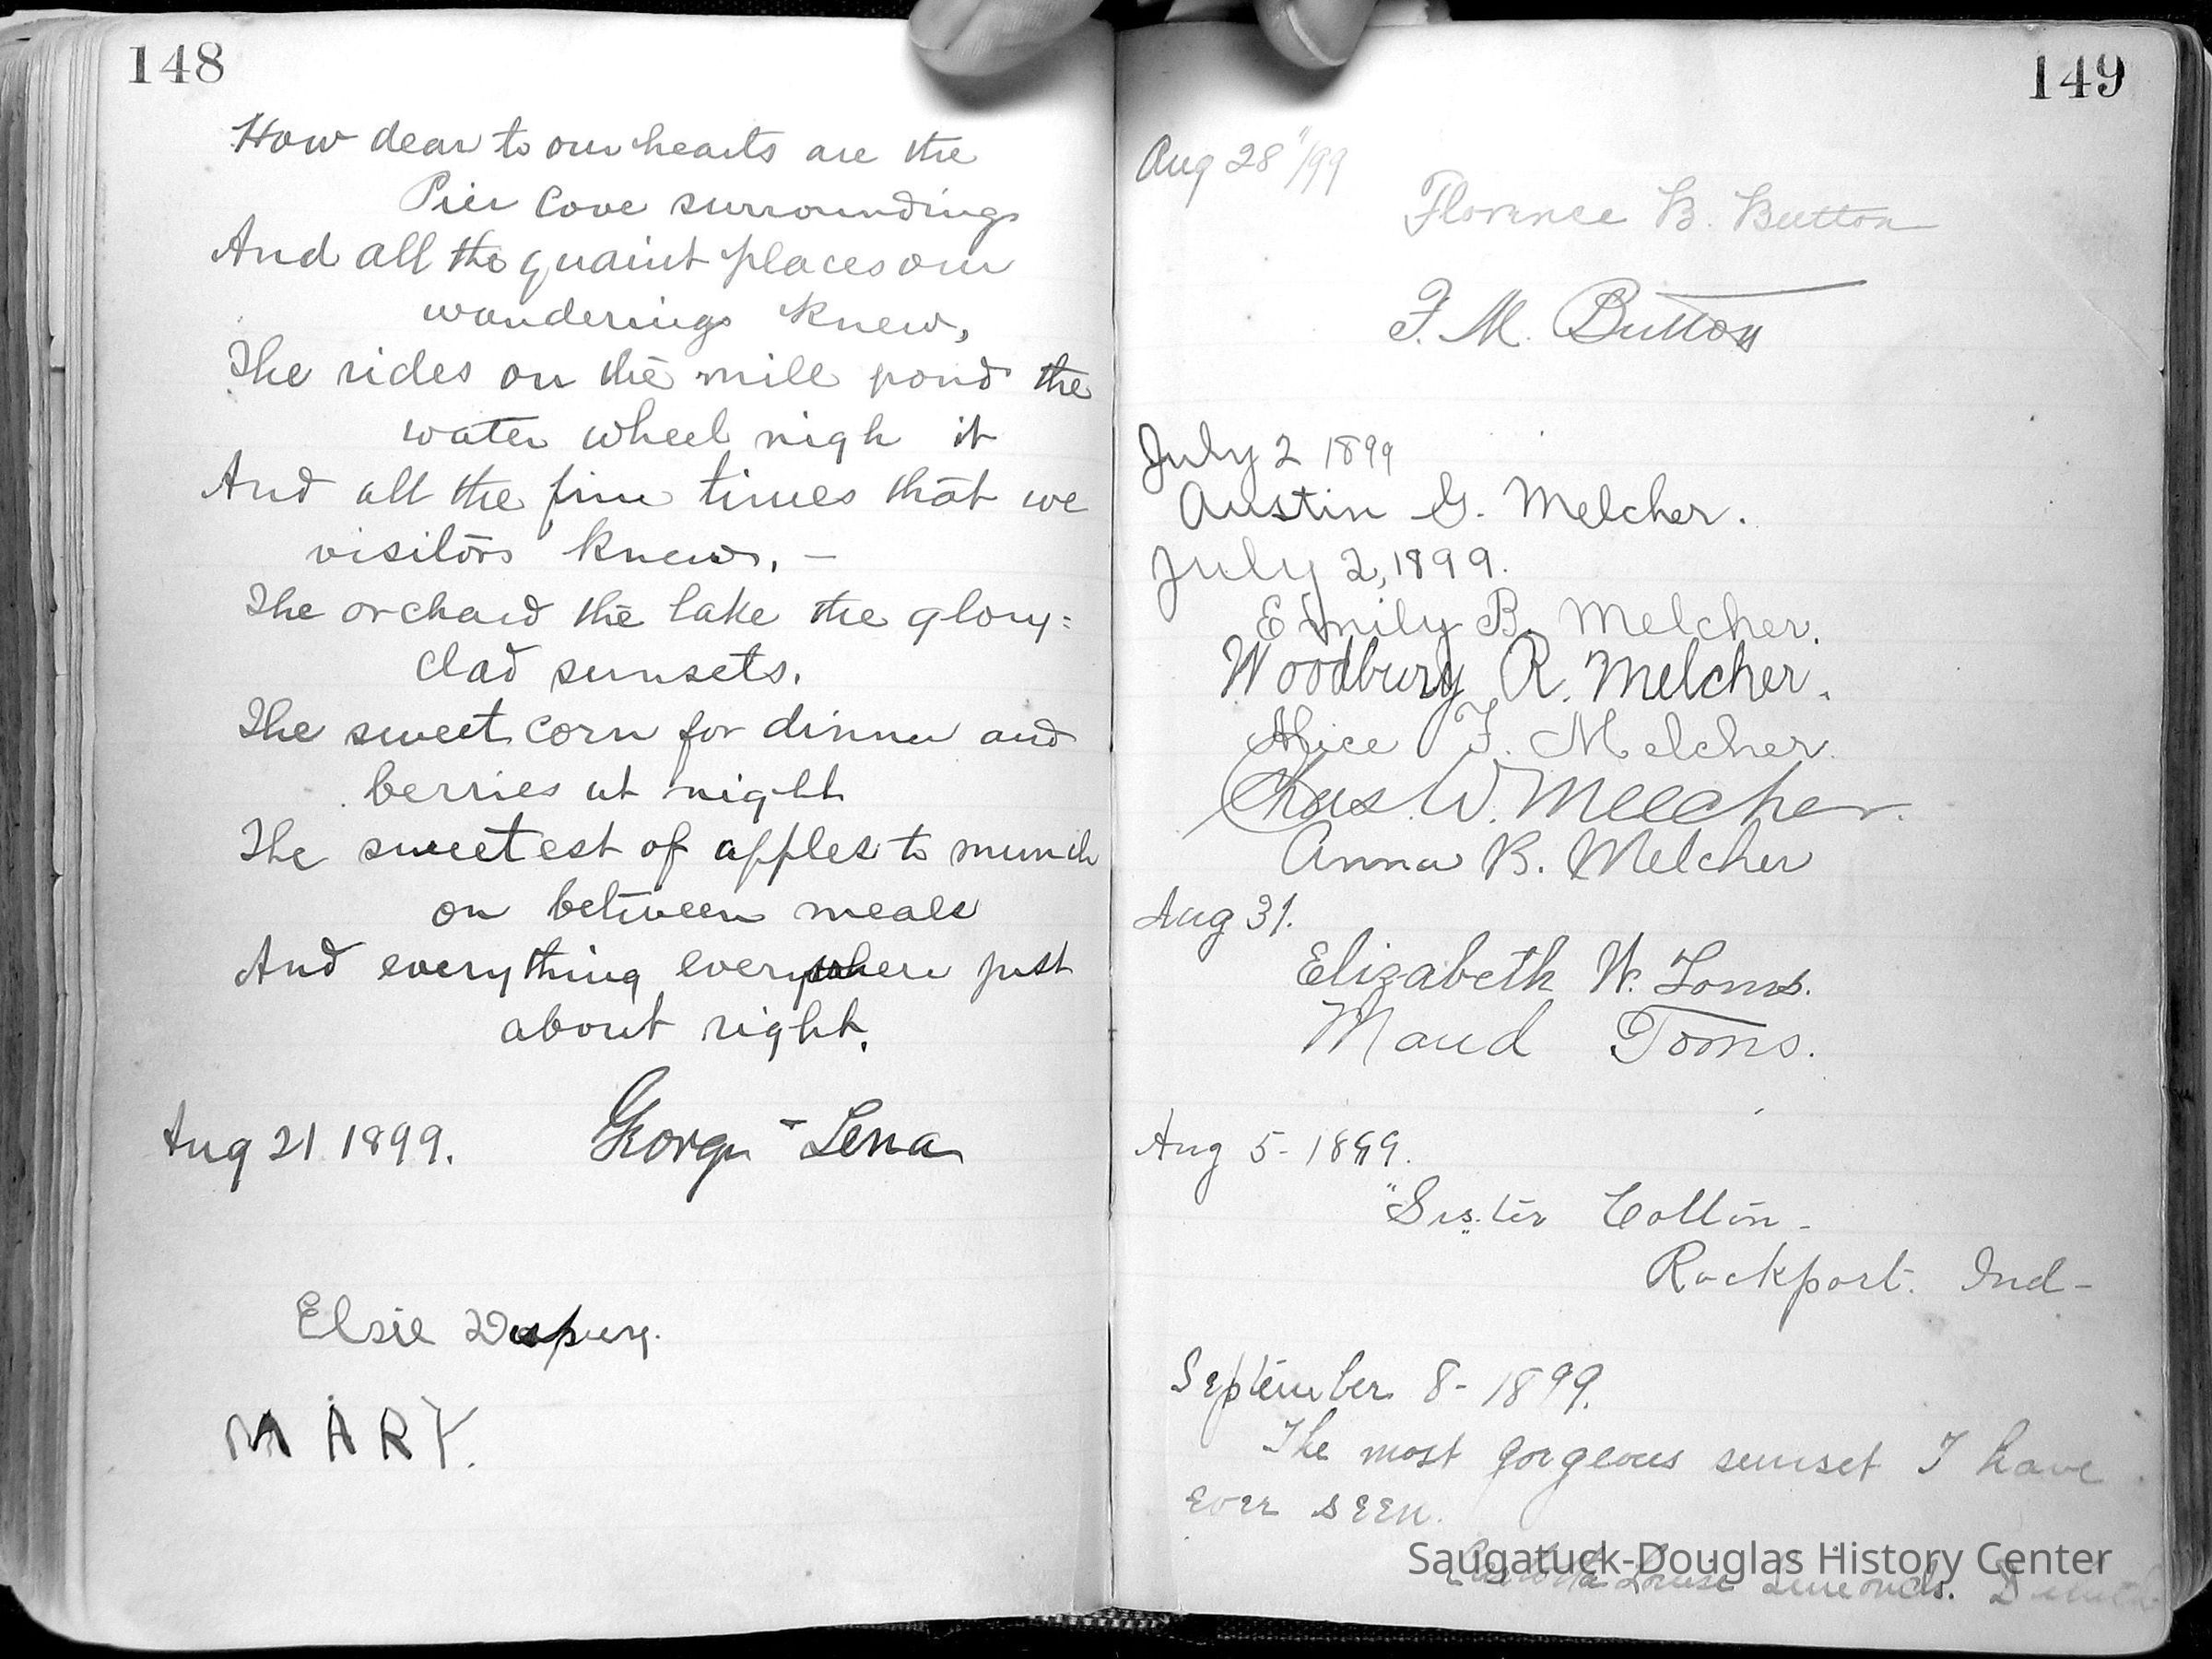 148
How dear to our hearts are the
Pier Cove surroundings
And all the quaint places our
wanderings knew,
The rides on the mill pond the
water wheel nigh it
And all the fine times that we
visitors knew. —
The orchard the lake the glory=
clad sunsets.
The sweet corn for dinner and
berries at night
The sweetest of apples to munch
on between meals
And everything everywhere just
about right.
Aug 21 1899. George - Lena
Elsie
MARY.
149
Aug 28"/99
Florence B. Button
F. M. Button
July 2 1899
Austin G. Melcher.
July 2, 1899.
Emily B. Melcher.
Woodbury R. Melcher.
Alice F. Melcher.
Chas. W. Melcher.
Anna B. Melcher
Aug 31.
Elizabeth W. Toms.
Maud Toms.
Aug 5 - 1899.
"Sister" -
Rockport. Ind -
September 8 - 1899.
The most gorgeous sunset I have
ever seen.
Louise
Saugatuck-Douglas History Center